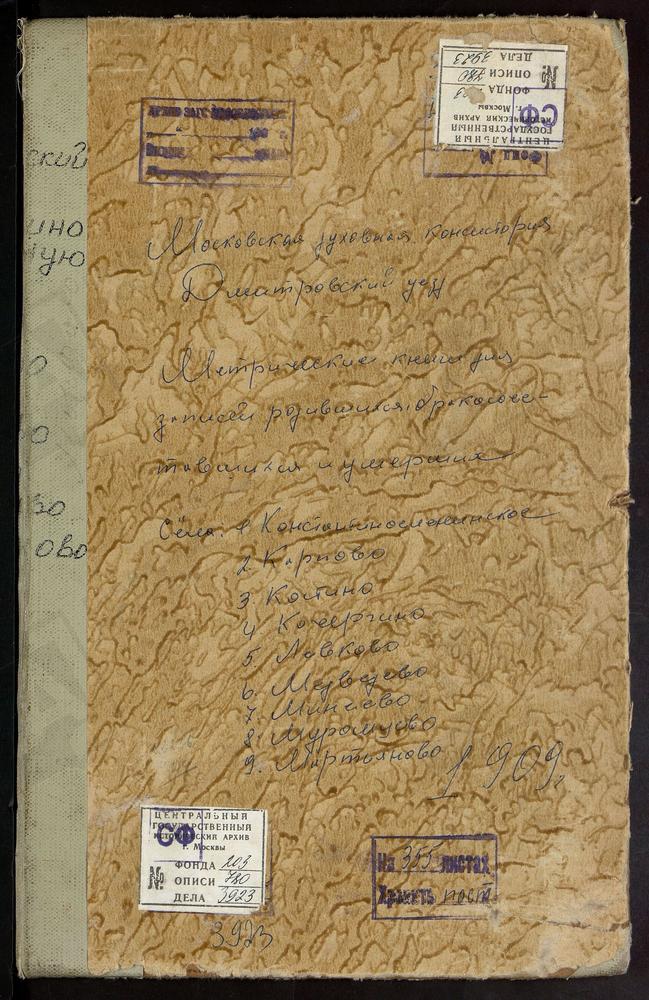 ский
ино
ую
о
о
во
ово
ЦЕНТРАЛЬНЫЙ
ГОСУДАРСТВЕННЫЙ
ИСТОРИЧЕСКИЙ АРХИВ
г. Москвы
СФ
ФОНДА
№ ОПИСИ 780
ДЕЛА 3923
Московская духовная консистория
Дмитровский уезд
Метрические книги для
записей родившихся, бракосоче-
тавшихся и умерших
Сёла: 1 Константиноеленинское
2. Карпово
3. Костино
4 Кочергино
5. Ловково
6. Медведево
7. Минеево
8. Муромцево
9. Мартьяново
1909
ЦЕНТРАЛЬНЫЙ
ГОСУДАРСТВЕННЫЙ
ИСТОРИЧЕСКИЙ АРХИВ
г. Москвы
СФ
ФОНДА 203
№ ОПИСИ 780
ДЕЛА 3923
3923
На 355 листах
Хранить пост